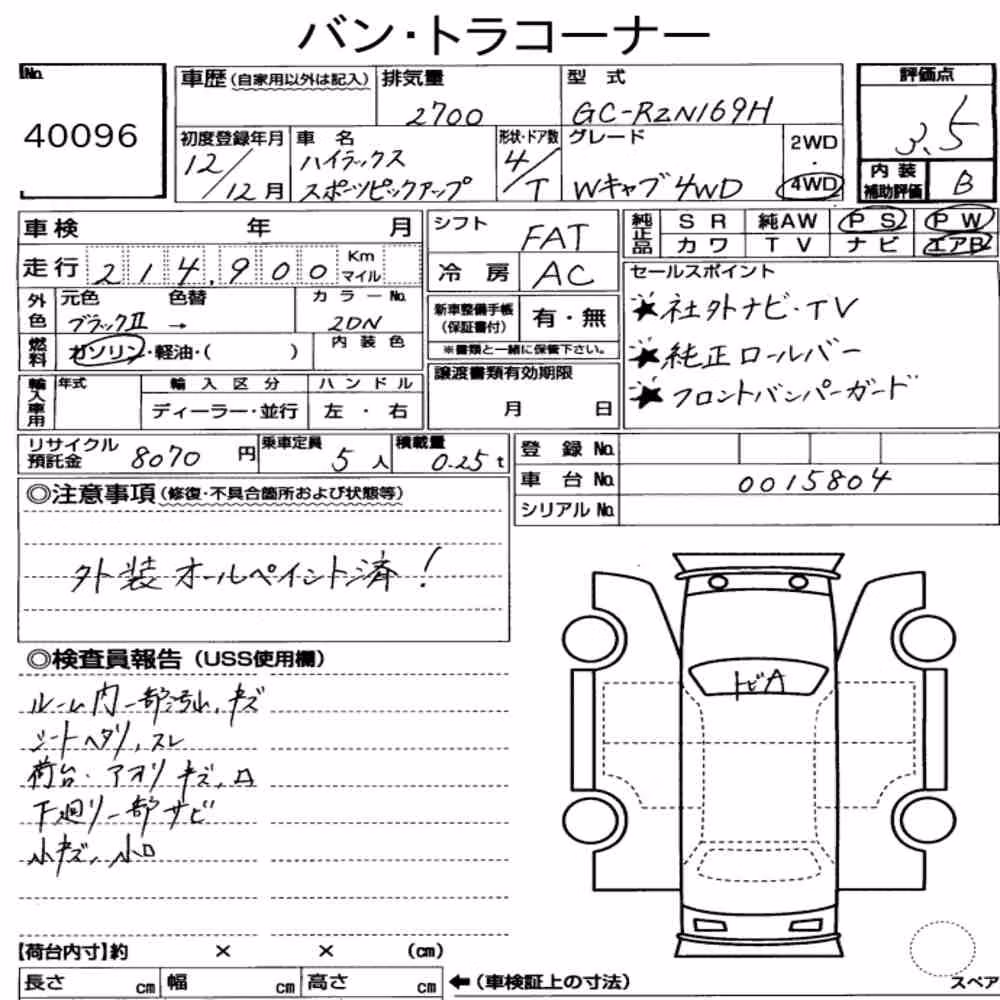 バン・トラコーナー
No.
40096
車歴(自家用以外は記入)
排気量
2700
型式
GC-RZN169H
評価点
3.5
初度登録年月
12/12月
車名
ハイラックス
スポーツピックアップ
形状・ドア数
4/T
グレード
Wキャブ4WD
2WD
・
4WD
内装
補助評価
B
車検 年 月
シフト
FAT
純正品
SR 純AW PS PW
カワ TV ナビ エアB
走行 214,900 Km
マイル
冷房
AC
セールスポイント
★社外ナビ・TV
★純正ロールバー
★フロントバンパーガード
外色
元色 色替
ブラックⅡ →
カラーNo.
2DN
新車整備手帳
(保証書付)
有・無
※書類と一緒に保管下さい。
燃料
ガソリン・軽油・( )
内装色
輸入車用
年式
輸入区分
ディーラー・並行
ハンドル
左・右
譲渡書類有効期限
月 日
リサイクル
預託金
8070円
乗車定員
5人
積載量
0.25t
登録No.
車台No.
0015804
シリアルNo.
◎注意事項(修復・不具合箇所および状態等)
外装オールペイント済!
◎検査員報告(USS使用欄)
ルーム内一部汚れ,キズ
シートヘタリ,スレ
荷台・アオリキズ,凹
下廻り一部サビ
小キズ,小凹
トビA
【荷台内寸】約 × × (cm)
長さ cm 幅 cm 高さ cm
←(車検証上の寸法)
スペア